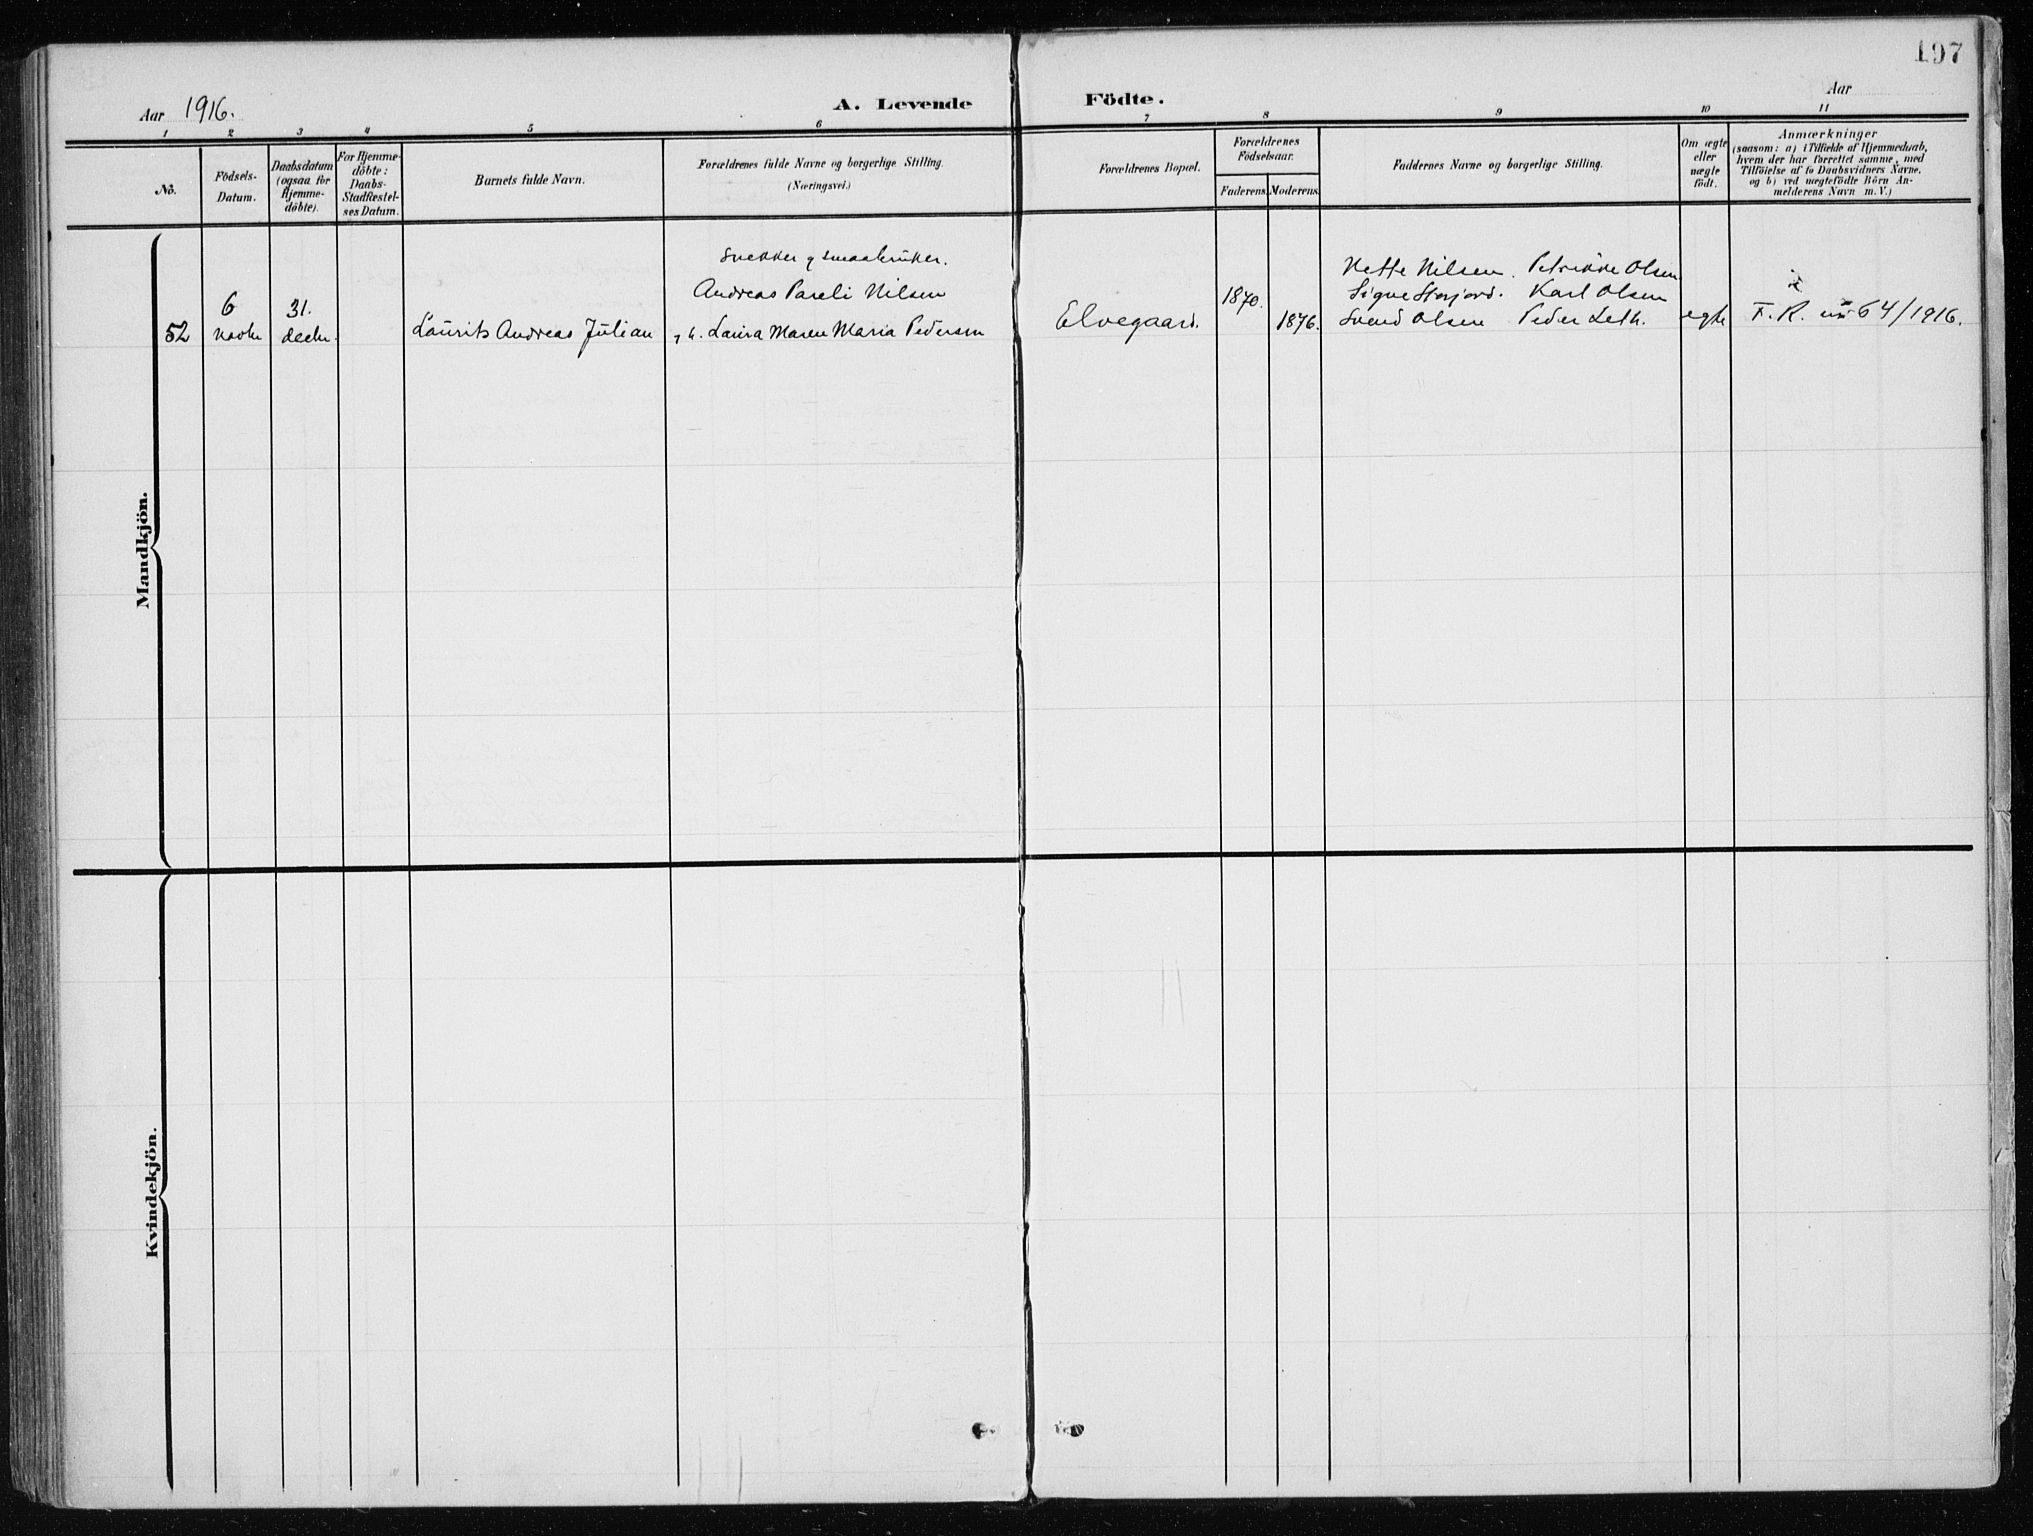 197
Aar 1916.
A. Levende Födte.
Aar
1 2 3 4 5 6 7 8 9 10 11
No.
Födsels-
Datum.
Daabsdatum
(ogsaa for
Hjemme-
döbte).
For Hjemme-
döbte:
Daabs-
Stadfæstel-
ses Datum.
Barnets fulde Navn.
Forældrenes fulde Navne og borgerlige Stilling.
(Næringsvei.)
Forældrenes Bopæl.
Forældrenes
Födselsaar.
Faderens. Moderens.
Faddernes Navne og borgerlige Stilling.
Om ægte
eller
uægte
födt.
Anmærkninger
(saasom: a) i Tilfælde af Hjemmedaab,
hvem der har forrettet samme, med
Tilföielse af to Daabsvidners Navne,
og b) ved uægtefödte Börn An-
melderens Navn m. V.)
Mandkjön.
52
6
novbr
31.
decbr.
Laurits Andreas Julian
Snekker og smaabruker.
Andreas Pareli Nilsen
og h. Laura Maren Maria Pedersen
Elvegaard.
1870.
1876.
Nette Nilsen. Petrikke Olsen
Signe Storjord. Karl Olsen
Svend Olsen Peder Leth.
egte
F. R. nr 64/1916.
Kvindekjön.